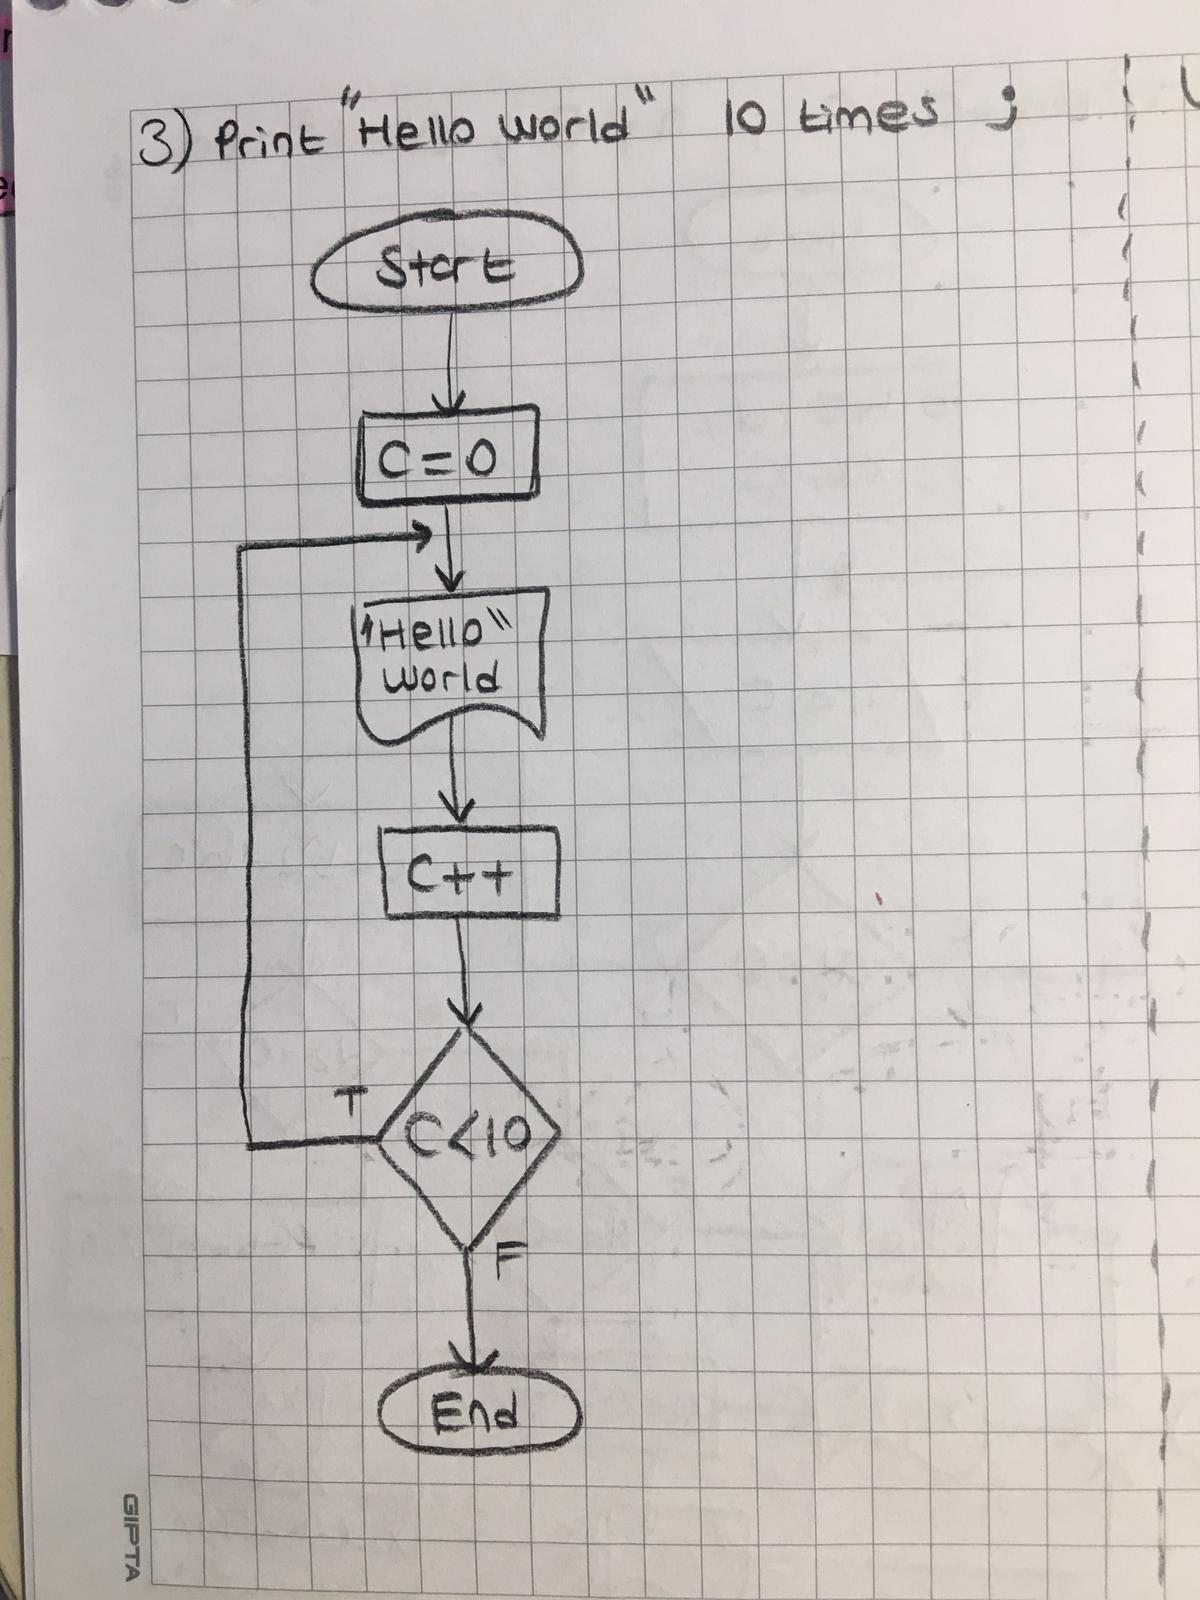 3) Print "Hello World" 10 times ;
Start
C=0
"Hello"
World
C++
T
C<10
F
End
GIPTA